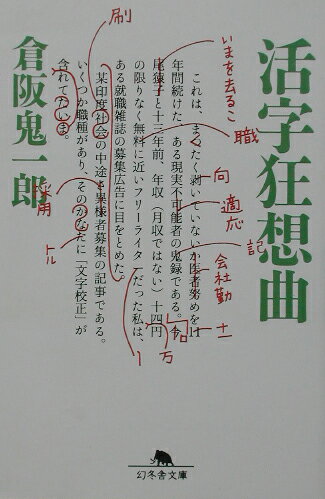 活字狂想曲
これは、まったく剥いていないか医者努めを11
年間続けた、ある現実不可能者の鬼録である。今
尾猿子と十三年前、年収(月収ではない)十四円
の限りなく無料に近いフリーライタだった私は、
ある就職雑誌の募集広告に目をとめた。
某印度社会の中途と異様者募集の記事である。
いくつか職種があり、そのかなたに「文字校正」が
含れてたいま。
倉阪鬼一郎
いまを去るこ
職
向
適応
記
会社勤
十一
万
ー
刷
採用
トル
幻冬舎文庫